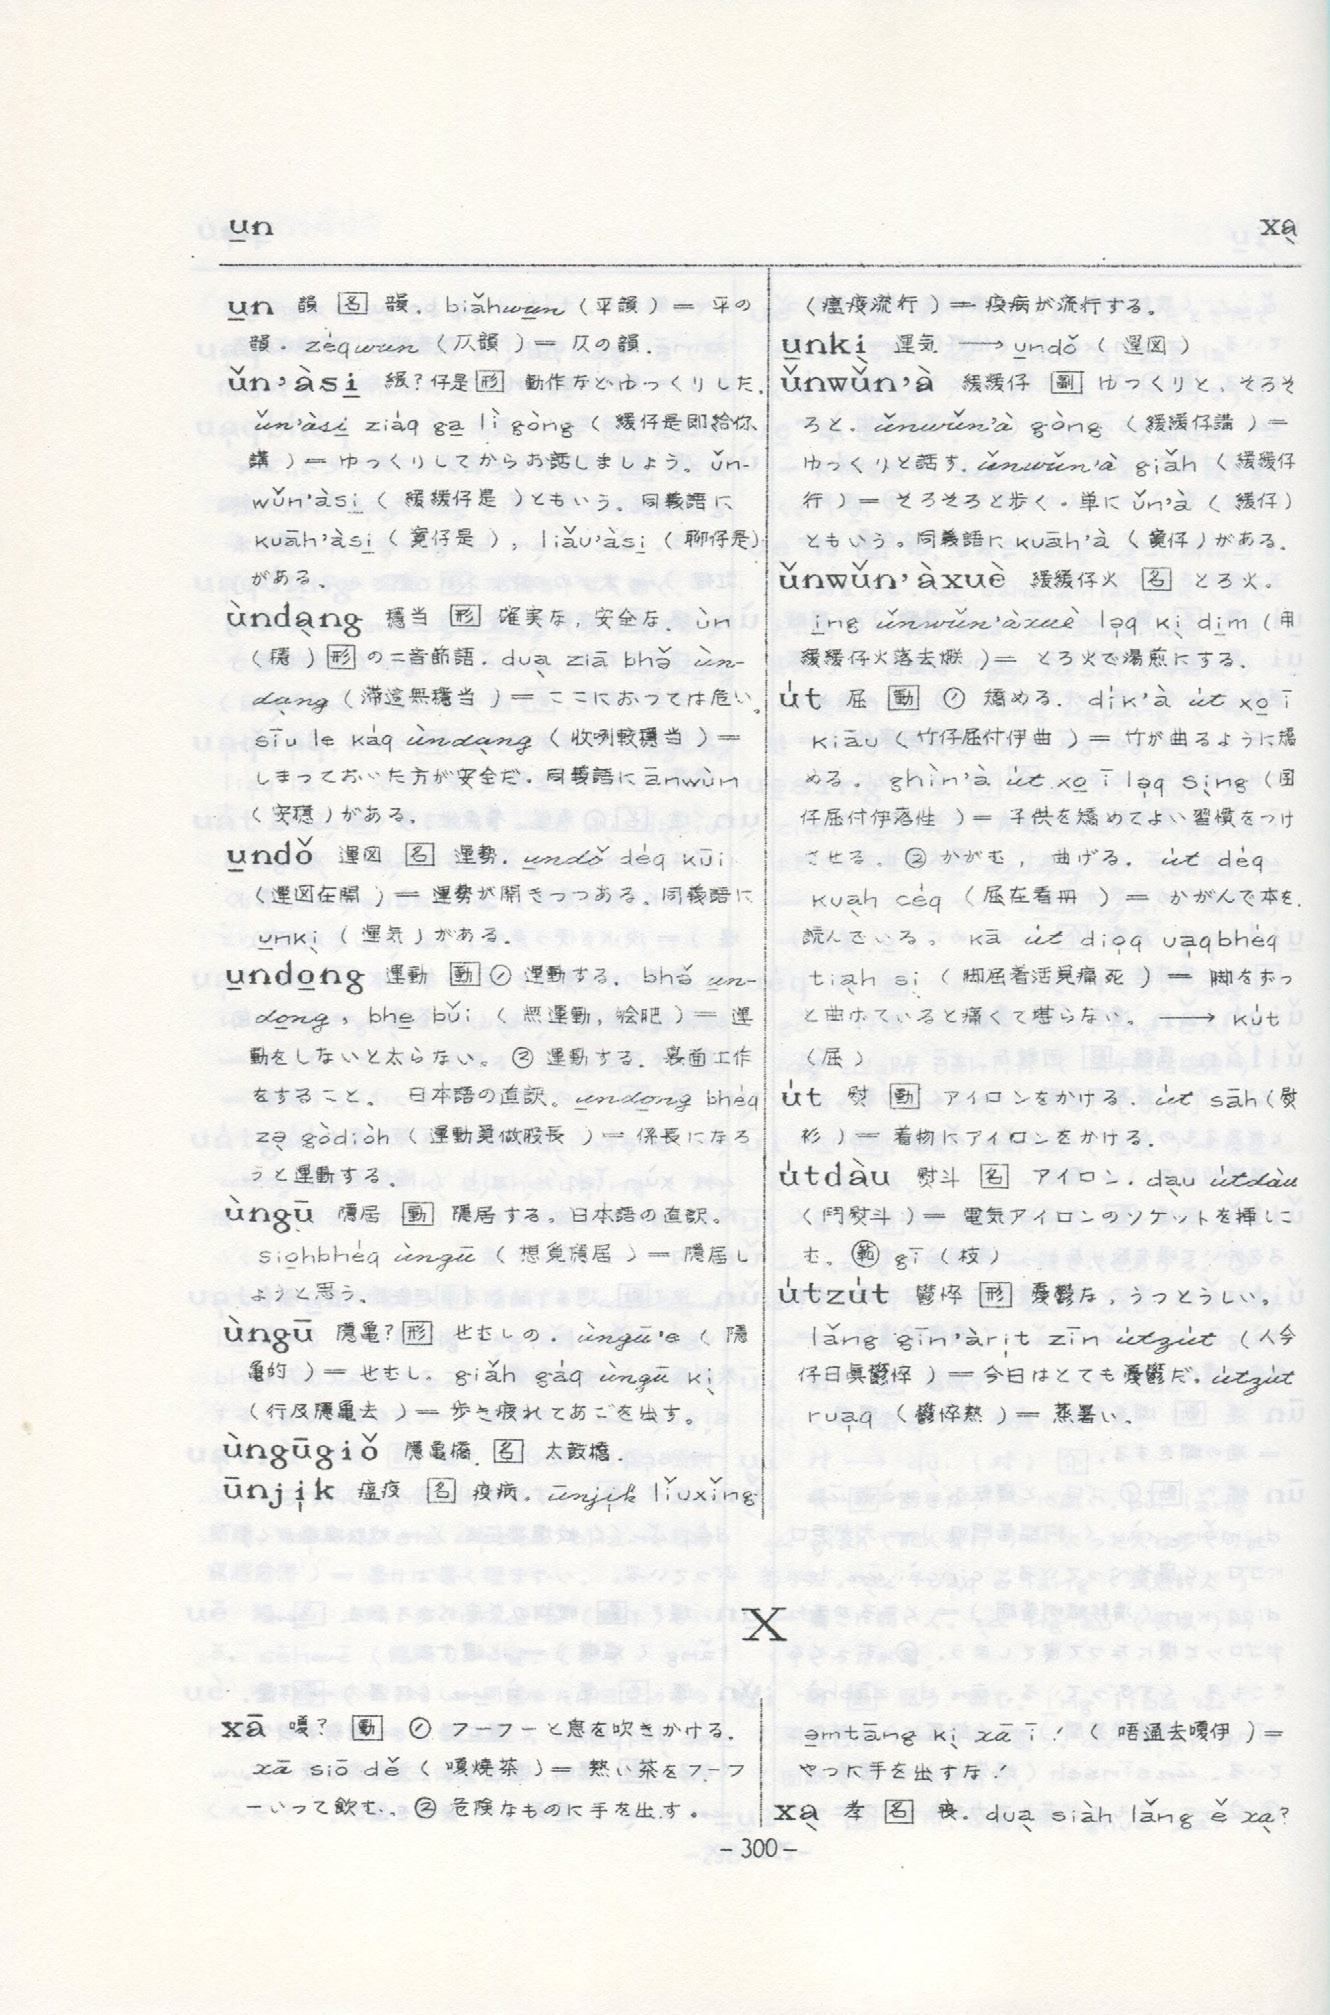 u̲n
xa̖
u̲n 韻 名 韻. biăhwu̲n (平韻) = 平の
韻. zéqwu̲n (仄韻) = 仄の韻.
ŭn'àsi̲ 緩?仔是 形 動作などゆっくりした.
ŭn'àsi̲ ziáq ga̲ lì gòng (緩仔是即給你
講) = ゆっくりしてからお話しましょう。ŭn-
wŭn'àsi̲ (緩緩仔是) ともいう。同義語に
kuāh'àsi̲ (寛仔是), liău'àsi̲ (聊仔是)
がある。
ùnda̖ng 穏当 形 確実な, 安全な. ùn
(穏) 形 の二音節語. dua̖ ziā bhə̆ ùn-
da̖ng (滞這無穏当) = ここにおっては危い。
sīu le káq ùnda̖ng (收咧較穏当) =
しまっておいた方が安全だ. 同義語に ānwùn
(安穏) がある。
u̲ndŏ 運図 名 運勢. u̲ndŏ déq kūi
(運図在開) = 運勢が開きつつある. 同義語に
u̲nki̖ (運気) がある.
u̲ndo̲ng 運動 動 ① 運動する. bhə̆ u̲n-
do̲ng, bhe̲ bŭi (無運動,獪肥) = 運
動をしないと太らない。② 運動する. 裏面工作
をすること。日本語の直訳。u̲ndo̲ng bhéq
zə̖ gòdiòh (運動覓做股長) = 係長になろ
うと運動する.
ùngū 隠居 動 隠居する。日本語の直訳.
sio̲hbhéq ùngū (想覓隠居) = 隠居し
ようと思う.
ùngū 隠亀? 形 せむしの. ùngū'e (隠
亀的) = せむし. giăh gáq ùngū ki̖
(行及隠亀去) = 歩き疲れてあごを出す。
ùngūgiŏ 隠亀橋. 名 太鼓橋.
ūnji̖k 瘟疫 名 疫病. ūnji̖k lĭuxĭng
(瘟疫流行) = 疫病が流行する。
u̲nki̖ 運気 ⟶ u̲ndŏ (運図)
ŭnwŭn'à 緩緩仔 副 ゆっくりと, そろそ
ろと. ŭnwŭn'à gòng (緩緩仔講) =
ゆっくりと話す. ŭnwŭn'à giăh (緩緩仔
行) = そろそろと歩く. 単に ŭn'à (緩仔)
ともいう。同義語に kuāh'à (寛仔) がある.
ŭnwŭn'àxuè 緩緩仔火 名 とろ火.
i̲ng ŭnwŭn'àxuè lə̖q ki̖ di̲m (用
緩緩仔火落去燉) = とろ火で湯煎にする.
út 屈 動 ① 矯める. dík'à út xo̲ ī
kiāu (竹仔屈付伊曲) = 竹が曲るように矯
める. ghìn'à út xo̲ ī lə̖q si̖ng (囝
仔屈付伊落性) = 子供を矯めてよい習慣をつけ
させる。② かがむ, 曲げる. út déq
kua̖h céq (屈在看冊) = かがんで本を
読んでいる。kā út dio̖q ua̖qbhéq
tia̖h si̖ (脚屈着活覓痛死) = 脚をずっ
と曲げていると痛くて堪らない。⟶ kút
(屈)
út 熨 動 アイロンをかける. út sāh (熨
衫) = 着物にアイロンをかける.
útdàu 熨斗 名 アイロン. da̖u útdàu
(鬥熨斗) = 電気アイロンのソケットを挿しこ
む. 範 gī (枝)
útzút 鬱悴 形 憂鬱な, うっとうしい.
lăng gīn'àri̖t zīn útzút (人今
仔日真鬱悴) = 今日はとても憂鬱だ. útzút
rua̖q (鬱悴熱) = 蒸暑い.
X
xā 嗄? 動 ① フーフーと息を吹きかける.
xā siō dĕ (嗄燒茶) = 熱い茶をフーフ
ーいって飲む. ② 危険なものに手を出す.
ə̲mtāng ki̖ xā ī! (唔通去嗄伊) =
やつに手を出すな!
xa̖ 孝 名 喪. dua̖ siàh lăng ĕ xa̖?
- 300 -